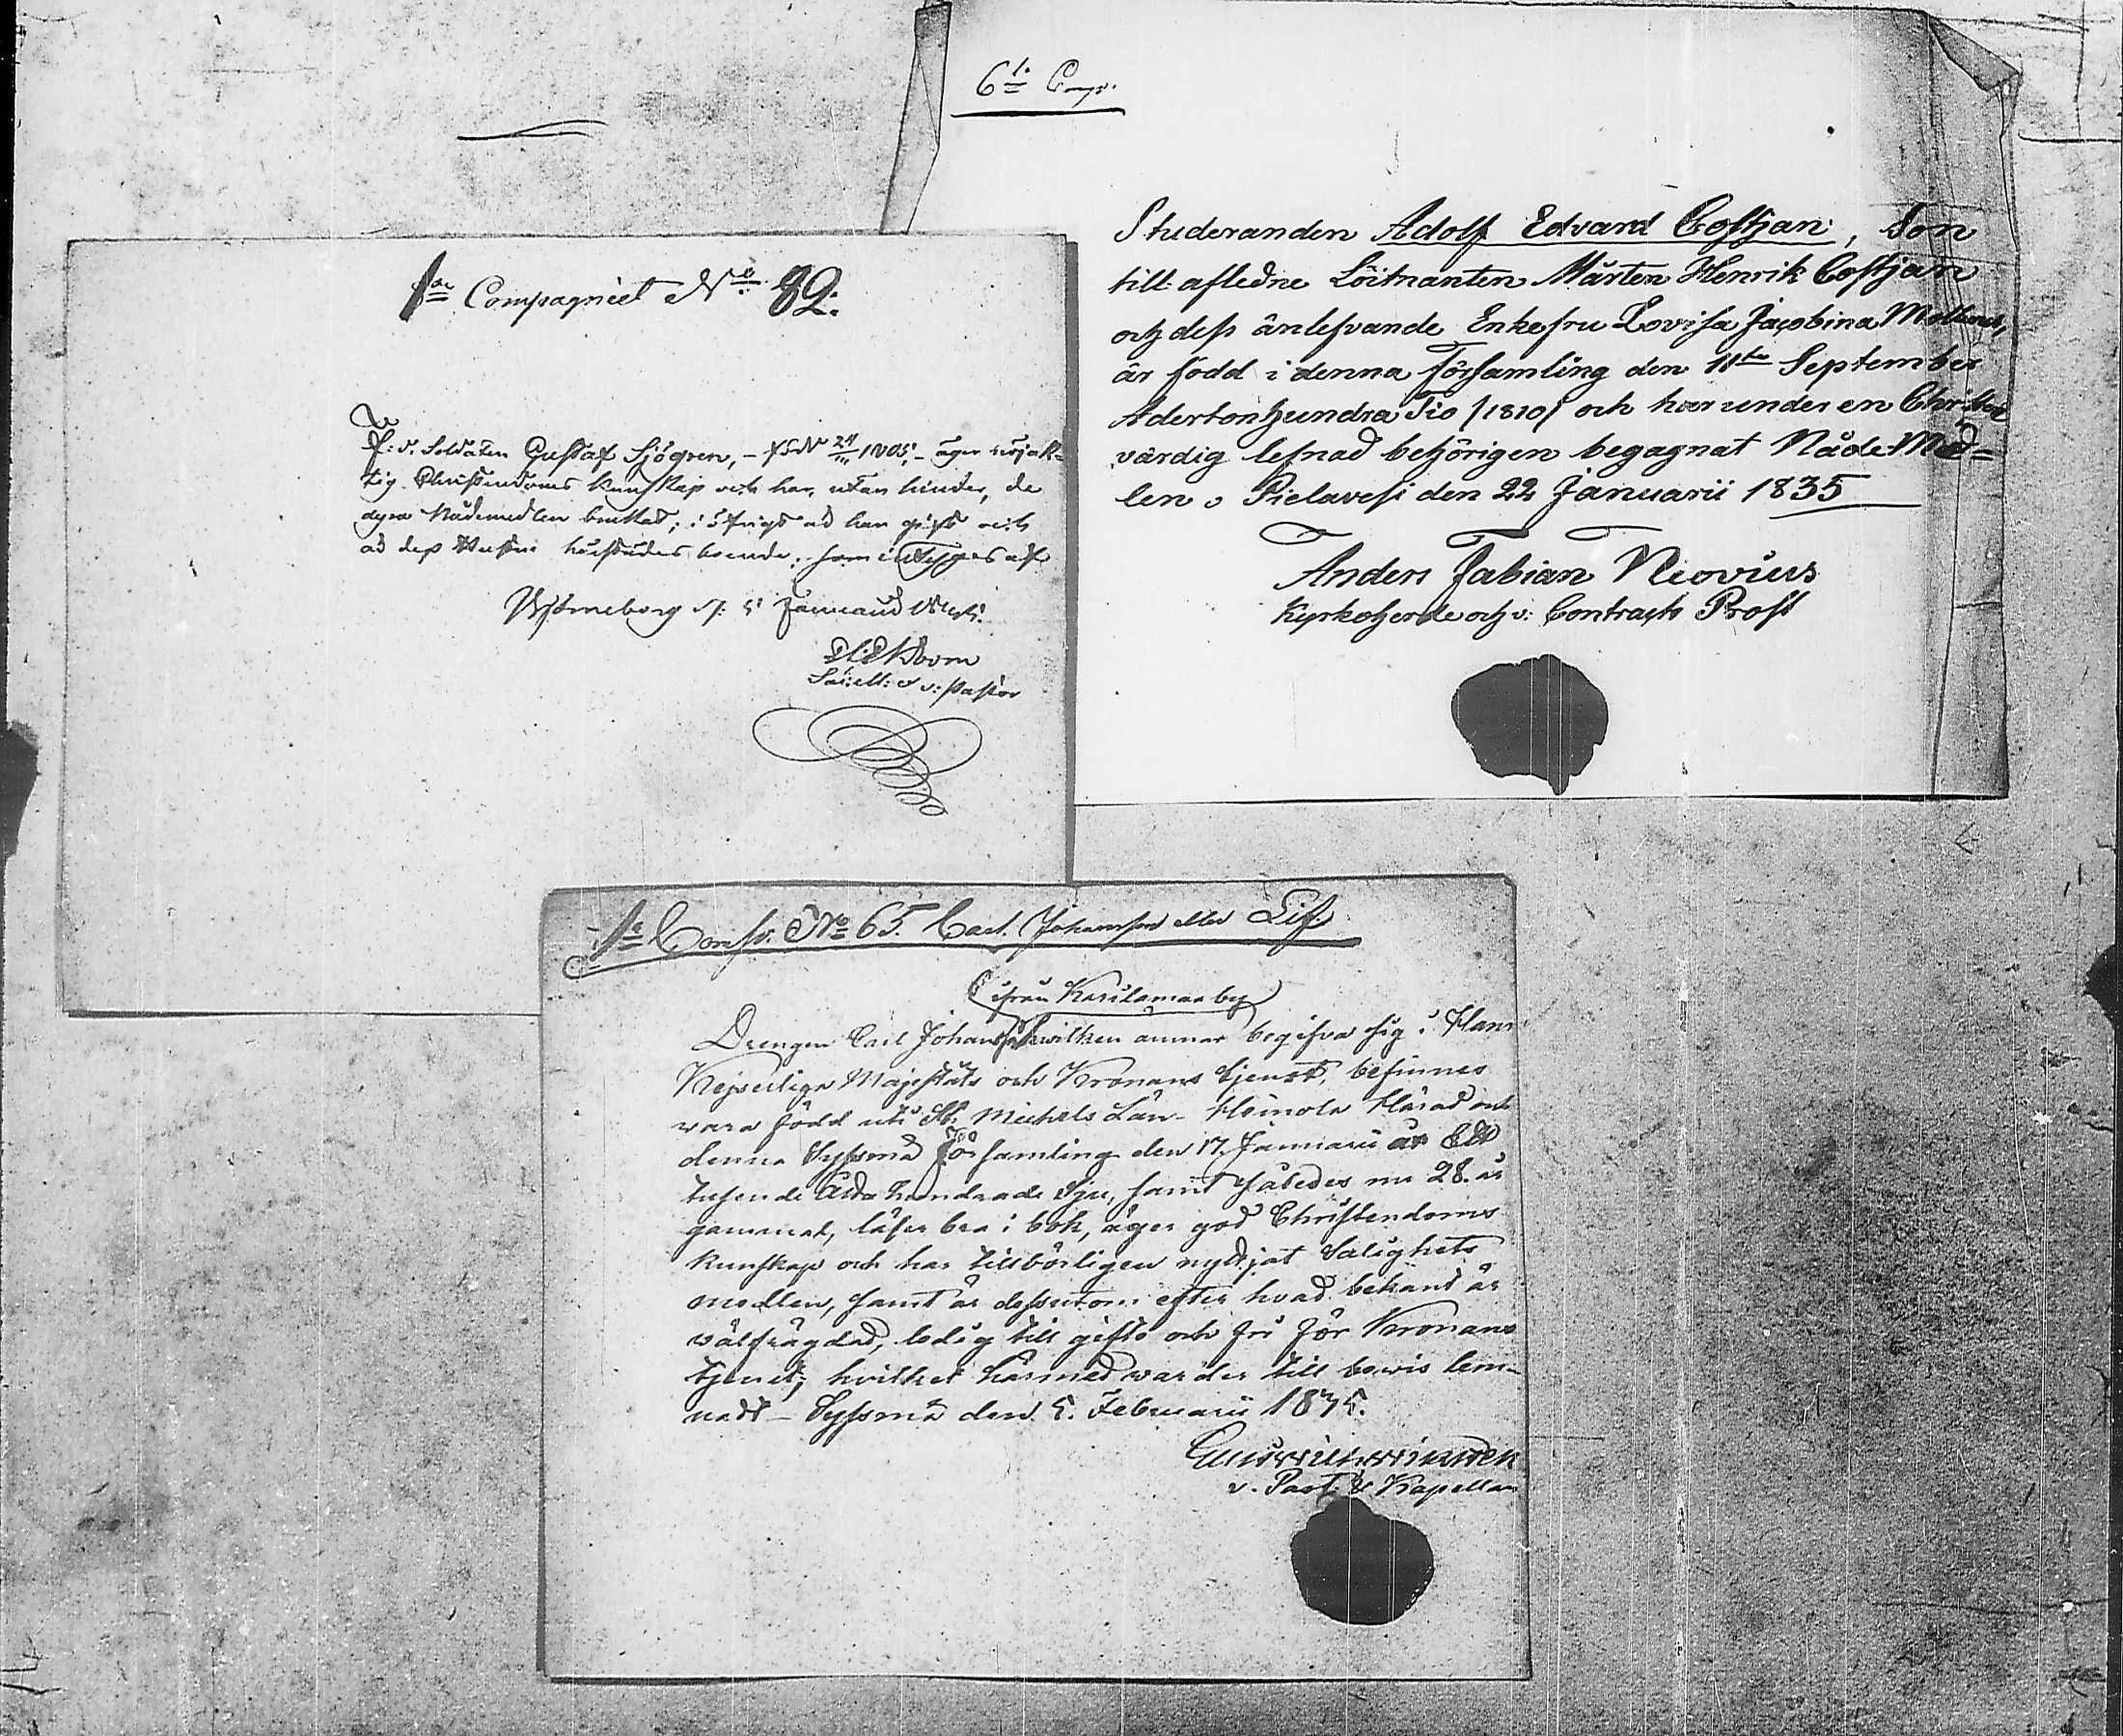 6te Comp.
Studeranden Adolf Edvard Costjan, Son
till afledne Löitnanten Mårten Henrik Costjan
och dess änlefvande Enkefru Lovisa Jacobina
är född i denna Församling den 11te September
Adertonhundra Tio /1810/ och har under en
värdig lefnad behörigen begagnat Nåde Med=
len, Pielavesi den 22 Januarii 1835
Anders Fabian Neovius
Kyrkoherde och v: Contracts Prost
1sta Compagniet No 82.
F: d. Soldaten Gustaf Sjögren, - 1805; - äger
tig Christendoms kunskap och har, utan hinder, de
dyra Nådemedlen brukat; i öfrigt är han gift och
som intygas af
Björneborg d. 5 Januarii
v: Pastor
1e Comp. No 65. Carl Johansson eller Lif.
ifrån by
Drengen Carl Johansson hvilken ämnar begifva sig i Hans
Kejserliga Majestäts och Kronans tjenst, befinnes
vara född uti St. Michels Län - Heinola Härad och
denna Syssmä Församling den 17. Januarii år Ett
tusende Åtta hundrade Sju, samt således nu 28. år
gammal, läser bra i bok, äger god Christendoms
kunskap och har tillbörligen nyttjat Salighets
medlen, samt är dessutom efter hvad bekant är
välfrägdad, ledig till gifte och fri för Kronans
tjenst; hvilket härmed varder till bevis lem-
nadt - Syssmä den 5. Februarii 1835.
v. Past. & Kapellan